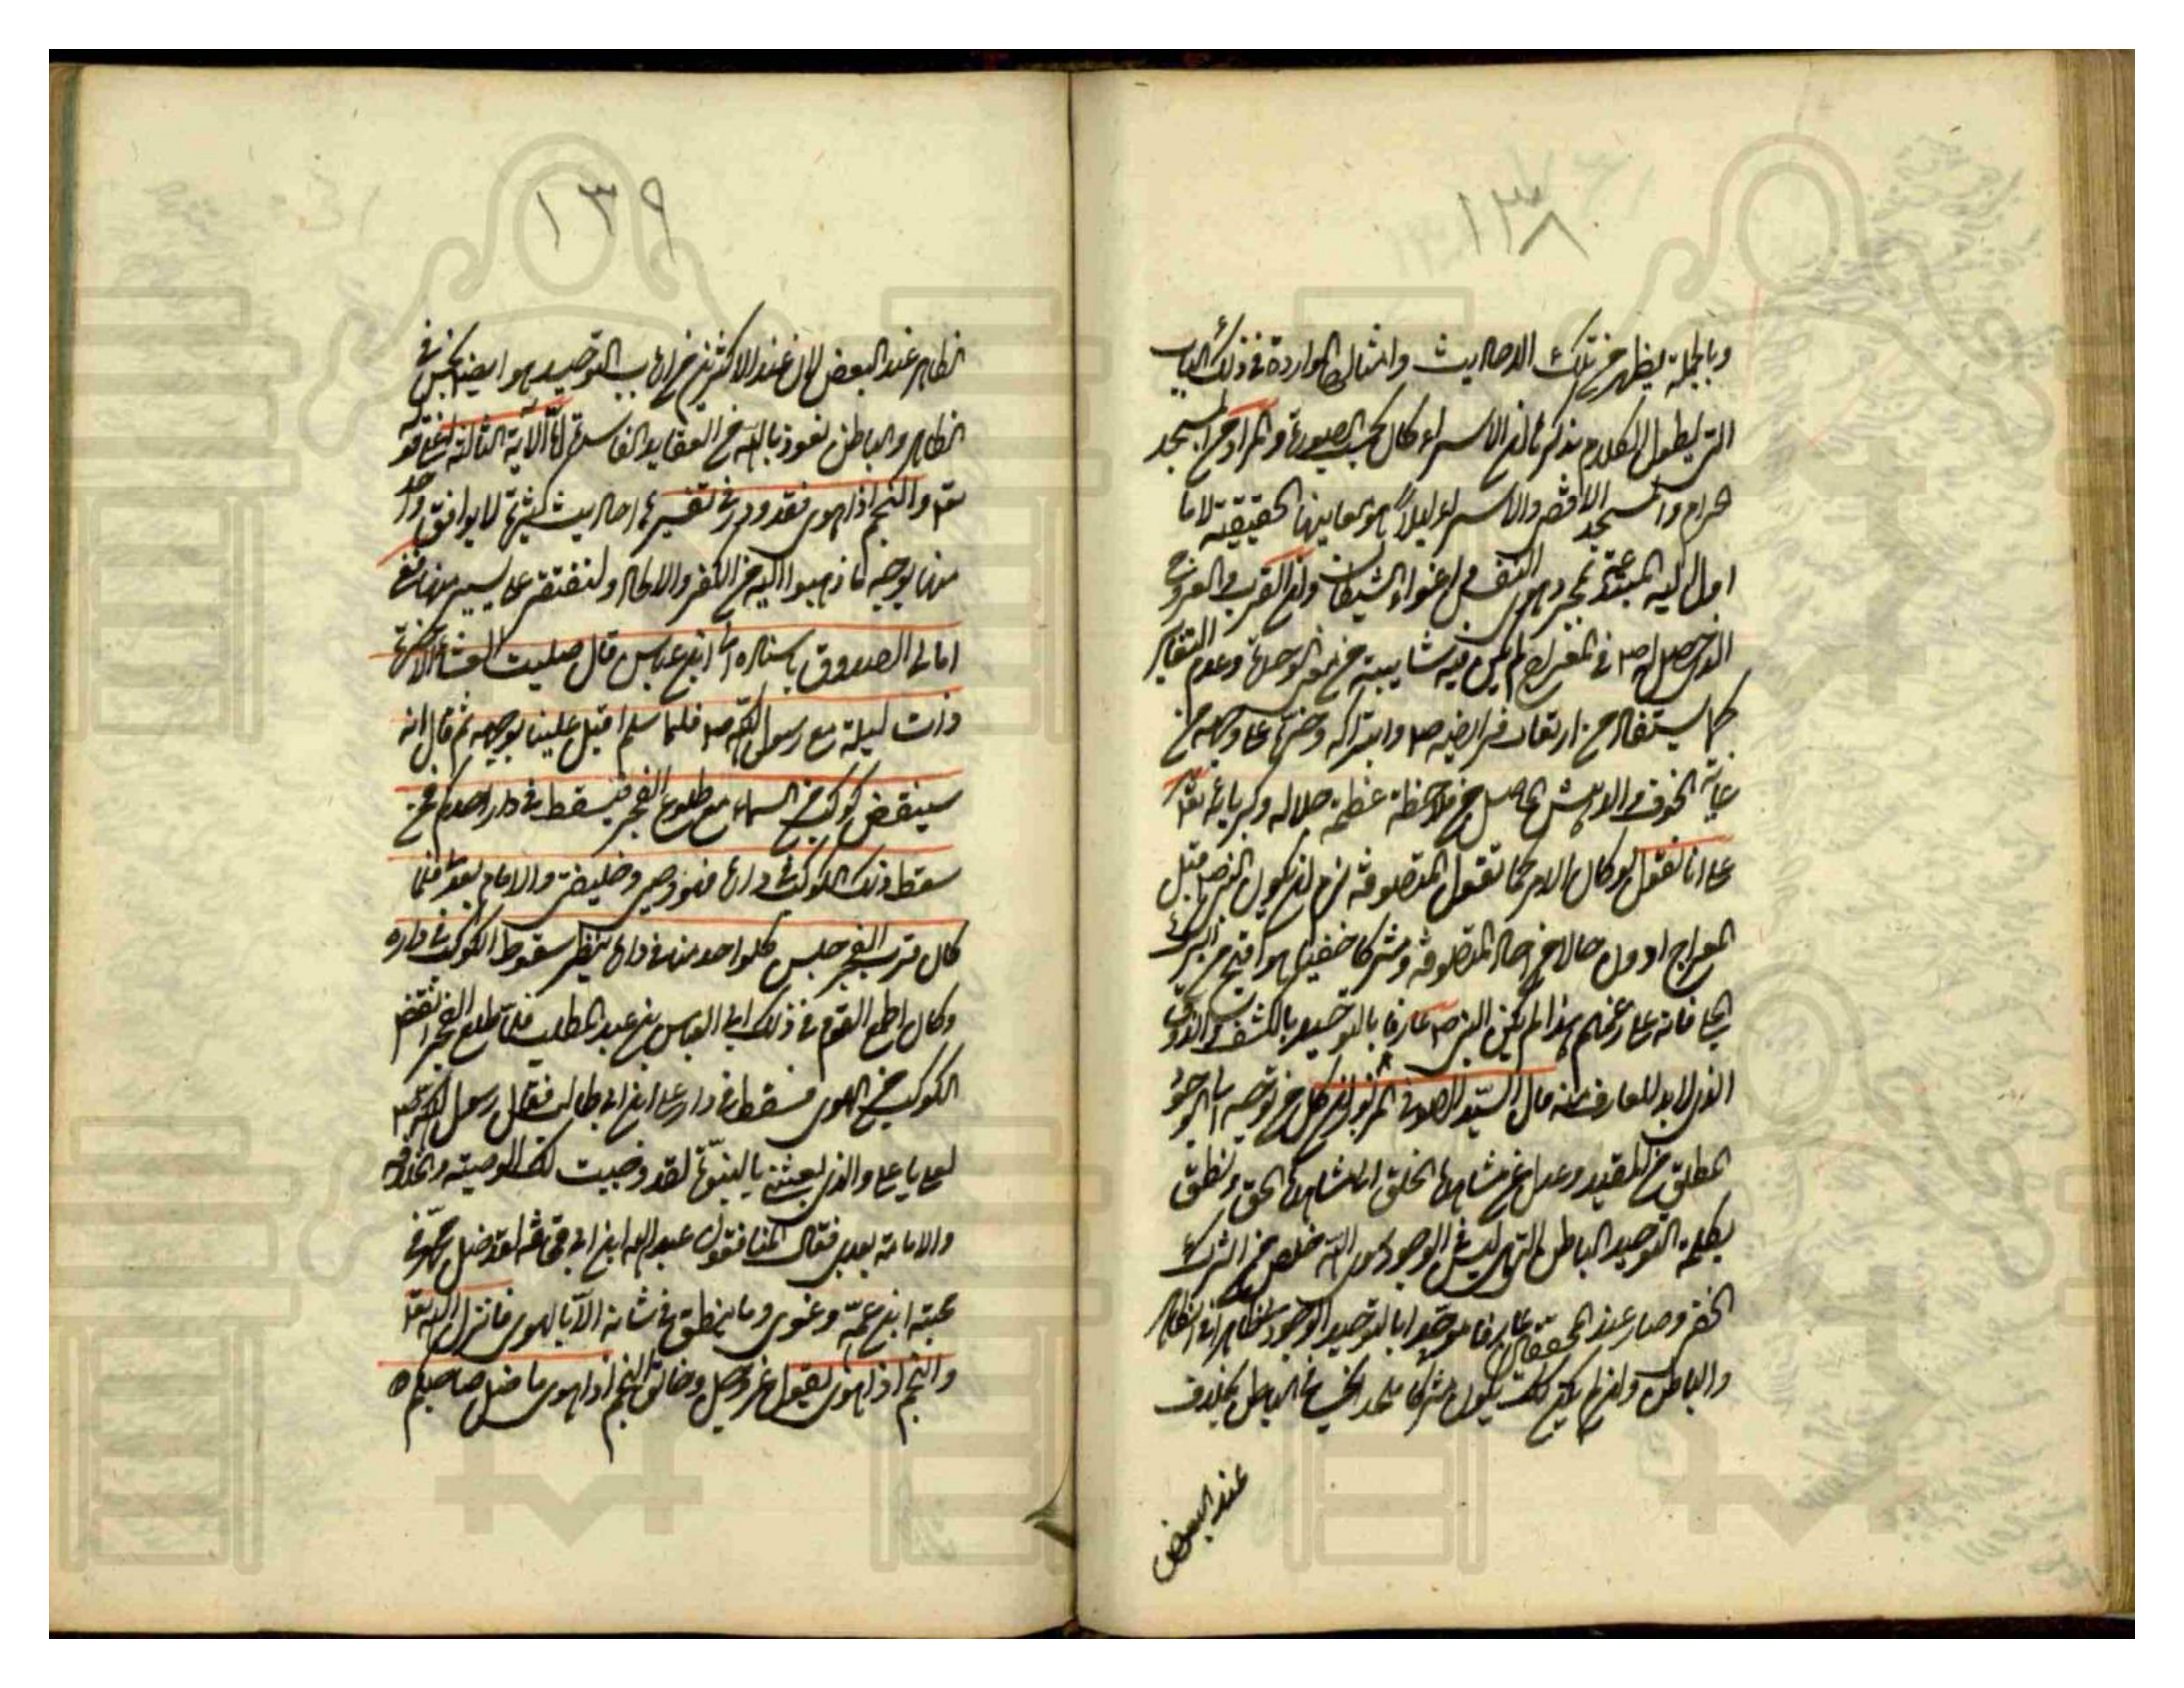 ١٣٨
وبالجملة يظهر من تلك الاحاديث وامثالها الواردة في ذلك الباب
التي يطول الكلام بذكرها ان الاسراء كان بحسب الصورة والمراد من المسجد
الحرام والمسجد الاقصى والاسراء ليلا هو معانيها الحقيقية لا ما
اول اليه المبتدعة بمجرد هوى النفس واغواء الشيطان وان القرب والعروج
الذي حصل له ص في المعراج لم يكن فيه شايبة من معنى الوحدة وعدم التغاير
كما يستفاد من ارتعاد فرايصه ص وابتراكه وخره على وجهه من
غاية الخوف والدهش الحاصل من ملاحظة عظمة جلاله وكبريائه تعالى
على انا نقول لو كان الامر كما تقول المتصوفة لزم ان يكون النبي ص قبل
المعراج ادون حالا من احاد المتصوفة ومشركا خفيا هو اقبح من الشرك
الجلي فانه على زعمهم هذا لم يكن النبي ص عارفا بالتوحيد بالكشف والذوق
الذي لابد للعارف منه قال السيد الصوفي المزبور ان كل من توجه الى الوجود
المطلق من المقيد وعدل عن مشاهدة الخلق الى مشاهدة الحق ونطق
بكلمة التوحيد الباطن التي هي ليس في الوجود سوى الله خلص من الشرك
الخفي وصار عند المحققين عارفا موحدا بالتوحيد الوجودي طاهرا في الظاهر
والباطن وان لم يكن كذلك يكون مشركا ملحدا نجسا في الباطن بخلاف
عند البعض
١٣٩
الظاهر عند البعض لان عند الاكثرين من ارباب التوحيد هو ايضا نجس في
الظاهر والباطن نعوذ بالله من العقايد الفاسدة اما الاية الثالثة اعني قوله
تعالى والنجم اذا هوى فقد ورد في تفسيرها احاديث كثيرة لا يوافق واحد
منها بوجه ما ذهبوا اليه من الكفر والالحاد ولنقتصر على يسير منها ففي
امالي الصدوق باسناده الى ابن عباس قال صليت العشاء الاخرة
ذات ليلة مع رسول الله ص فلما سلم اقبل علينا بوجهه ثم قال انه
سينقض كوكب من السماء مع طلوع الفجر فيسقط في دار احدكم فمن
سقط ذلك الكوكب في داره فهو وصيي وخليفتي والامام بعدي فلما
كان قرب الفجر جلس كل واحد منا في داره ينتظر سقوط الكوكب في داره
وكان اطمع القوم في ذلك ابي العباس بن عبد المطلب فلما طلع الفجر انقض
الكوكب من الهوى فسقط في دار علي ابن ابي طالب فقال رسول الله ص
لعلي يا علي والذي بعثني بالنبوة لقد وجبت لك الوصية والخلافة
والامامة بعدي فقال المنافقون عبد الله ابن ابي واصحابه لقد ضل محمد في
محبة ابن عمه وغوى وما ينطق في شانه الا بالهوى فانزل الله تعالى
والنجم اذا هوى يقول عز وجل وخالق النجم اذا هوى ما ضل صاحبكم